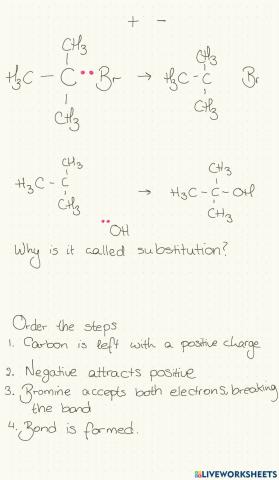 + −
CH3 CH3
H3C - C •• Br → H3C - C Br
CH3 CH3
CH3 CH3
H3C - C → H3C - C - OH
CH3 CH3
•• OH
Why is it called substitution?
Order the steps
1. Carbon is left with a positive charge
2. Negative attracts positive
3. Bromine accepts both electrons, breaking
the bond
4. Bond is formed.
LIVEWORKSHEETS